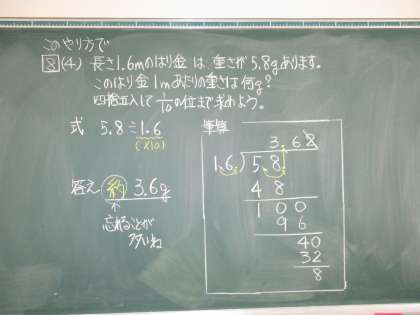 このやり方で
8 (4) 長さ1.6mのはり金は、重さが5.8gあります。
このはり金1mあたりの重さは何g?
四捨五入して1/10の位まで求めよう。
式 5.8÷1.6
(×10)
答え 約3.6g
↑
忘れることが
多いね
筆算
3.62
1.6)5.8
48
100
96
40
32
8